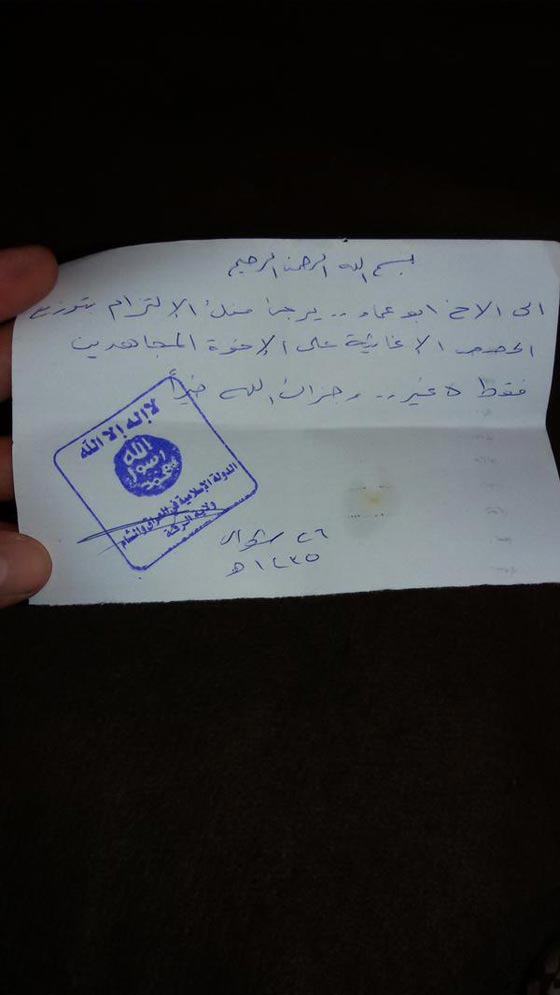 بسم الله الرحمن الرحيم
الى الاخ ابو عماد .. يرجى منك الإلتزام بتوزيع
الحصص الإغاثية على الإخوة المجاهدين
فقط لا غير .. وجزاك الله خيراً
لا إله إلا الله
الله
رسول
محمد
الدولة الإسلامية في العراق والشام
ولاية البركة
٢٦ شوال
١٤٣٥ هـ